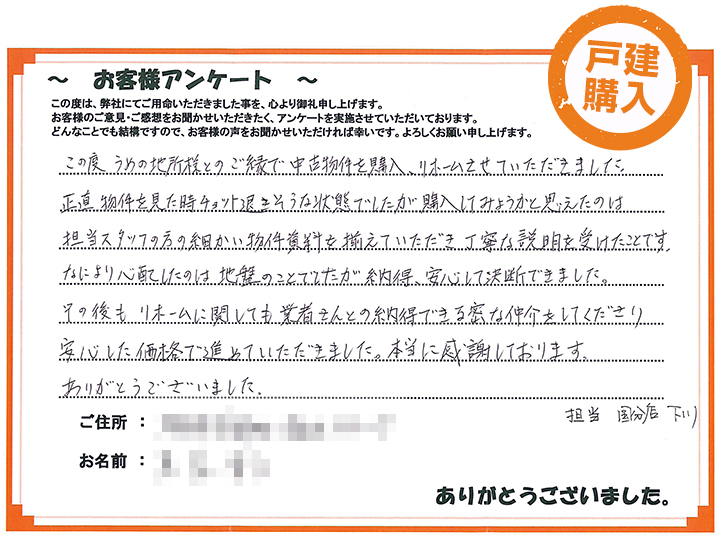 戸建
購入
～ お客様アンケート ～
この度は、弊社にてご用命いただきました事を、心より御礼申し上げます。
お客様のご意見・ご感想をお聞かせいただきたく、アンケートを実施させていただいております。
どんなことでも結構ですので、お客様の声をお聞かせいただければ幸いです。よろしくお願い申し上げます。
この度 うめの地所様とのご縁で 中古物件を購入、リホームさせていただきました。
正直 物件を見た時チョット退きそうな状態でしたが 購入してみようかと思えたのは
担当スタッフの方の細かい物件資料を揃えていただき 丁寧な説明を受けたことです。
なにより心配したのは 地盤のことでしたが 納得、安心して決断できました。
その後も リホームに関しても 業者さんとの納得できる密な仲介をしてくださり
安心した価格で進めていただきました。本当に感謝しております。
ありがとうございました.
担当 国分店 下川
ご住所 ：
お名前 ：
ありがとうございました。